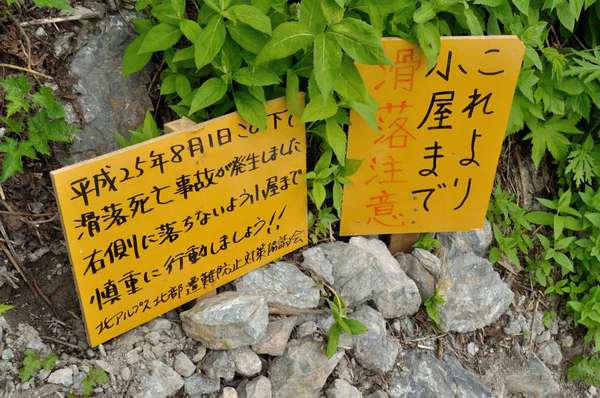 平成25年8月1日この下で
滑落死亡事故が発生しました
右側に落ちないよう小屋まで
慎重に行動しましょう!!
北アルプス北部遭難防止対策協議会
これより
小屋まで
滑落注意